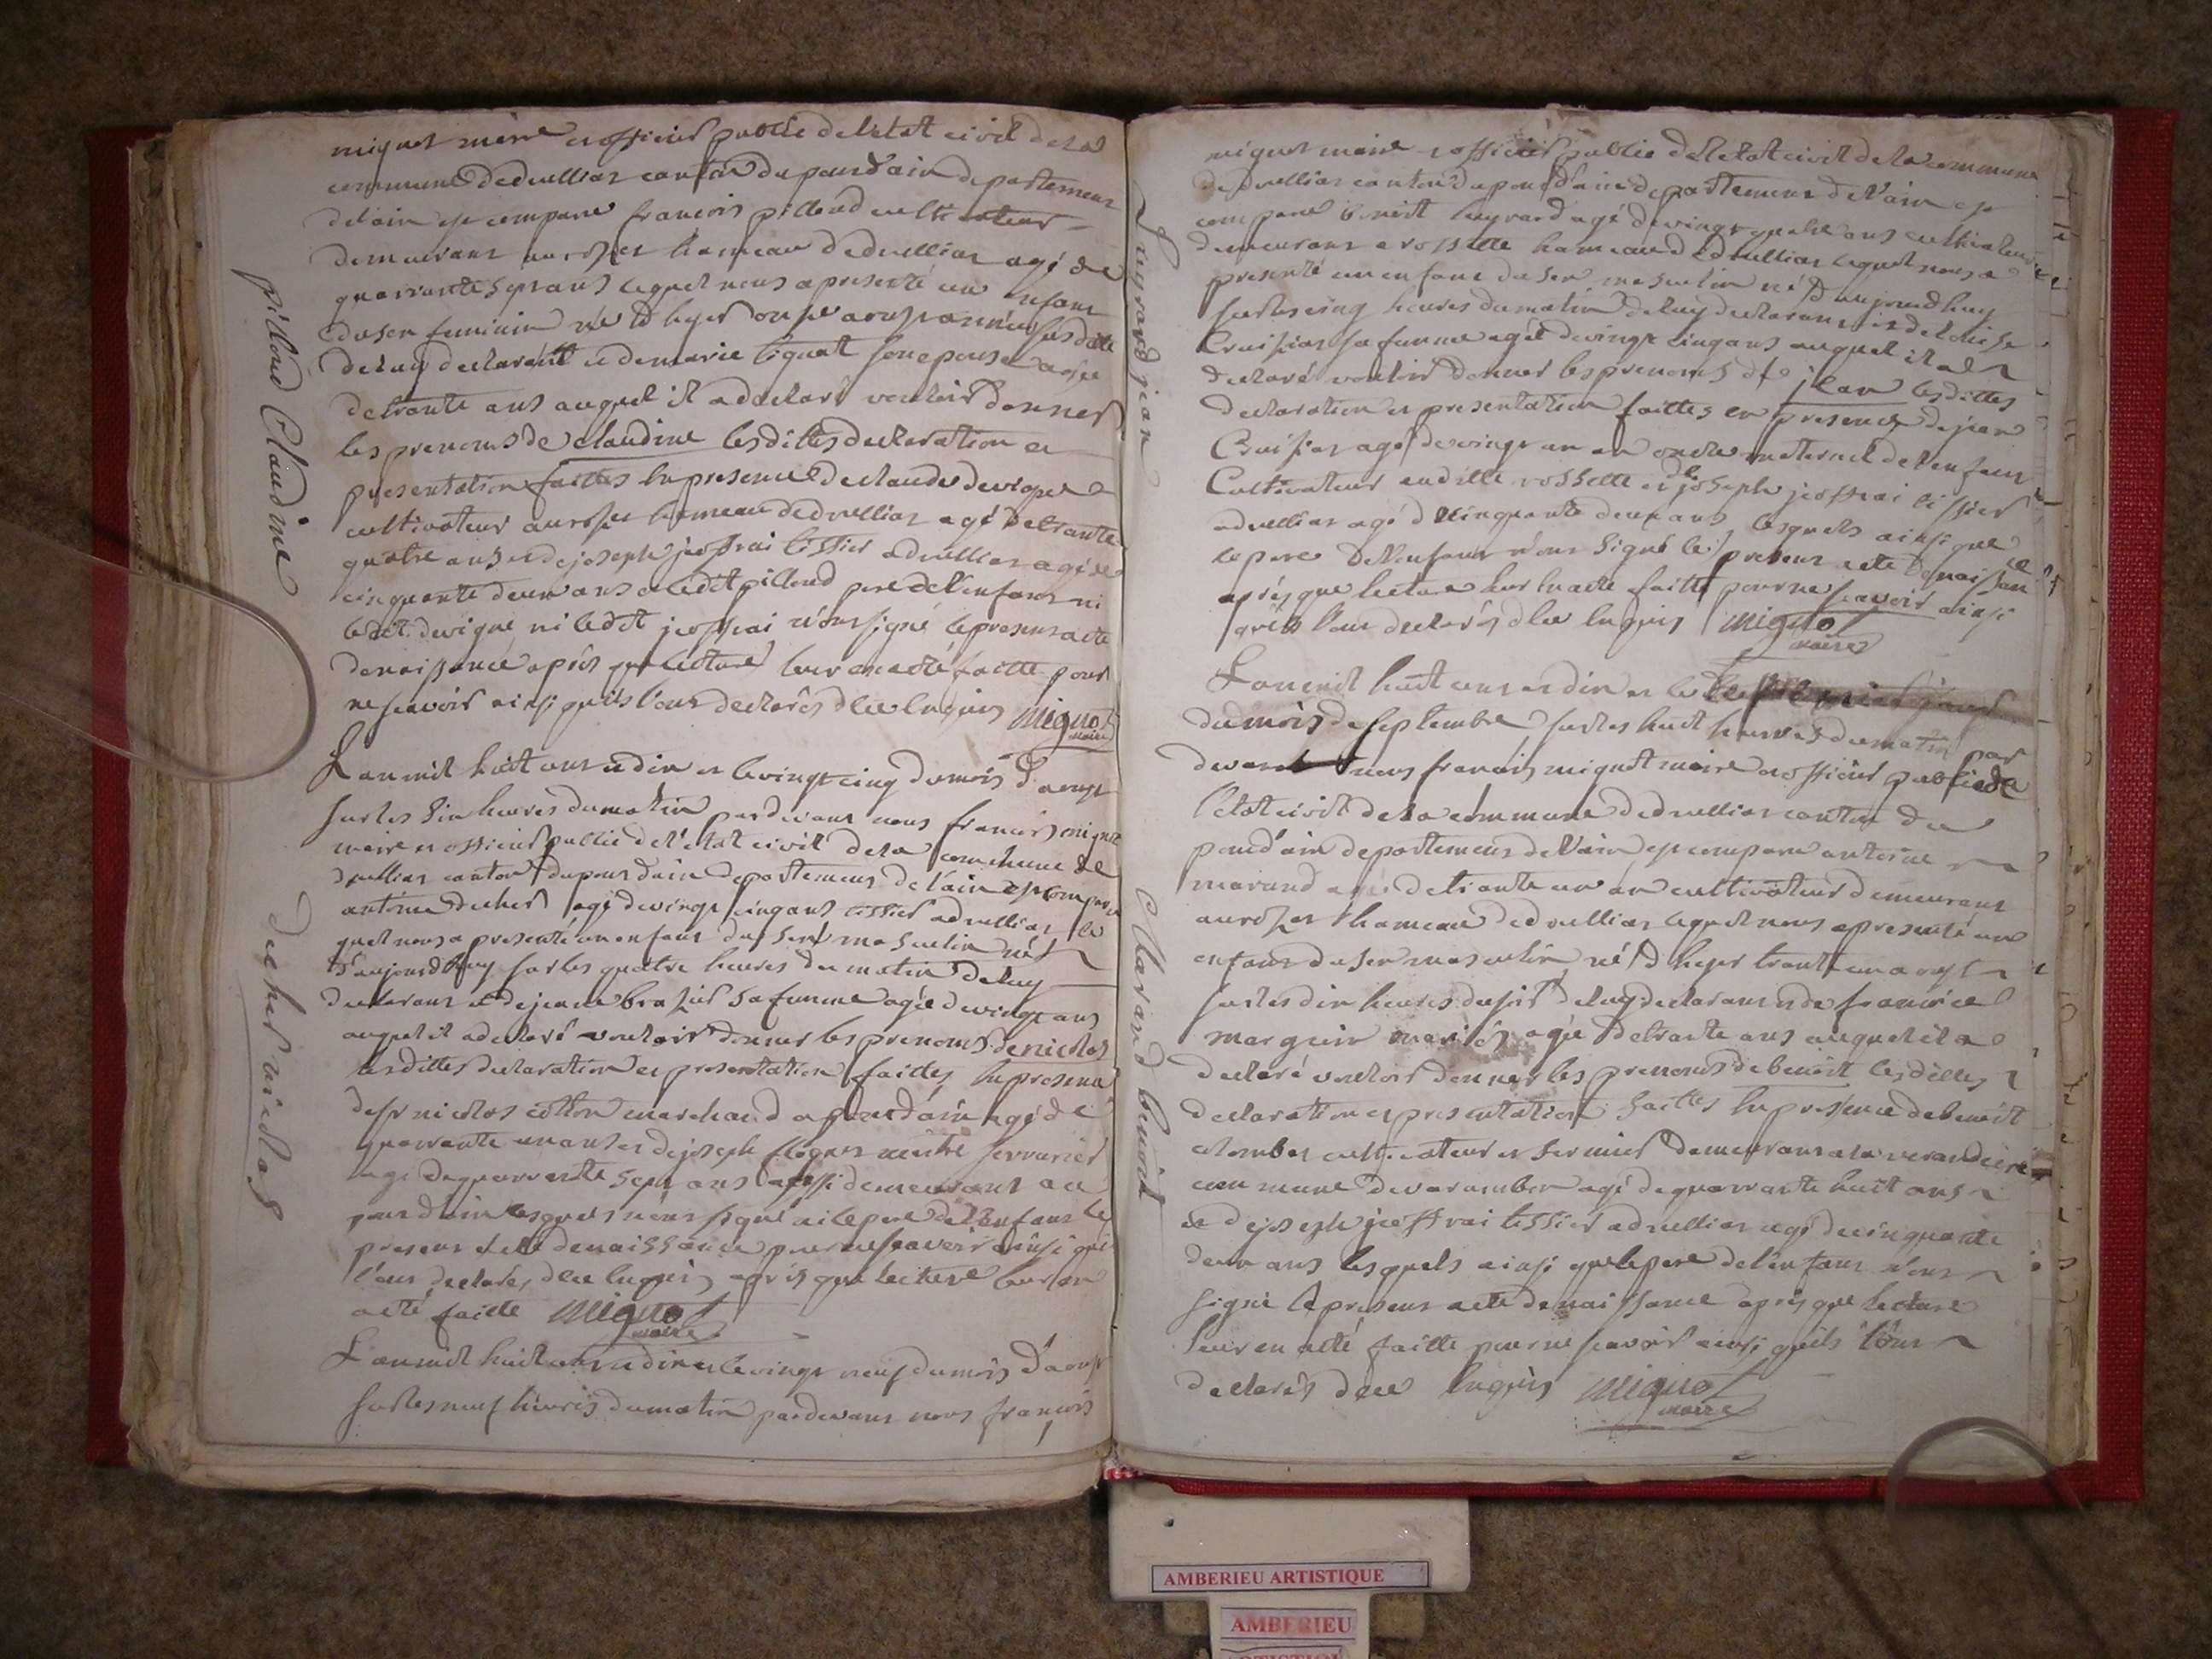 miguet maire et officier public de letat civil de la
commune de druillias canton du pond d'ain departement
de l'ain est comparu francois pilloud cultivateur
demeurant aux hameau de druillias agé de
quarrante sept ans lequel nous a presenté un enfant
du sex feminin née d heyer onse aoust année susdite
de luy declarant et de marie son epouse agée
de trante ans auquel il a declaré vouloir donner
les prenoms de claudine lesdittes declaration et
presentation faittes en presence de claude devigne
cultivateur hameau de druillias agé de trante
quatre ans et de joseph jeoffrai tissier a druillias agé de
cinquante deux ans et ledit pilloud pere de l'enfant ni
ledit devigne ni ledit jeoffrai n'ont signé le present acte
de naissance après que lecture leur en a été faitte pour
ne scavoir ainsi qu'ils l'ont declarés d ce enquis Miguet
maire
pilloud Claudine
L an mil huit cent et dix et le vingt cinq du mois d'aoust
sur les dix heures du matin par devant nous francois miguet
maire et officier public de l'état civil de la commune de
druillias canton du pont dain departement de l'ain est comparu
antoine decher agé de vingt cinq ans tissier a druillias le
quel nous a presenté un enfant du sex masculin né
d'aujourdhuy sur les quatre heures du matin de luy
declarant et de jeane brasier sa femme agée de vingt ans
auquel il a declaré vouloir donner les prenoms de nicolas
lesdittes declaration et presentation faittes en presence
de sr nicolas marchand a pond d'ain agé de
quarrante un ans et de joseph serrurier
agé de quarrante sept ans aussi demeurant au
pont d'ain lesquels n'ont signé ni le pere de l'enfant le
present acte de naissance pour ne scavoir ainsi qu'ils
l'ont declarés, d ce enquis, après que lecture leur en
a été faitte Miguet
maire
decher nicolas
L an mil huit cent et dix et le vingt neuf du mois d'aoust
sur les neuf heures du matin par devant nous francois
miguet maire et officier public de letat civil de la commune
de druillias canton du pond d'ain departement de l'ain est
comparu benoit agé de vingt quatre ans cultivateur
demeurant a rossette hameau de druillias lequel nous a
presenté un enfant du sex masculin né d'aujourdhuy
sur les cinq heures du matin de luy declarant et de louise
Cruisias sa femme agée de vingt cinq ans auquel il a
declaré vouloir donner les prenoms de jean lesdittes
declaration et presentation faittes en presence de jean
Cruisias agé de vingt un an oncle maternel de l'enfant
Cultivateur auditte rossette et de joseph jeoffrai tissier
a druillias agé d cinquante deux ans lesquels ainsi que
le pere de l'enfant n'ont signé le present acte de naissance
après que lecture leur en a été faitte pour ne scavoir ainsi
qu'ils l'ont declarés d ce enquis Miguet
maire
jean
L an mil huit cent et dix et le
du mois de septembre sur les huit heures du matin par
devant nous francois miguet maire et officier public de
l'état civil de la commune de druillias canton du
pond d'ain departement de l'ain est comparu antoine
marand agé de trante un an cultivateur demeurant
hameau de druillias lequel nous a presenté un
enfant du sex masculin né d heyer trante un aoust
sur les dix heures du soir de luy declarant et de francoise
marguin mariés agée de trante ans auquel il a
declaré vouloir donner les prenoms de benoit lesdittes
declaration et presentation faittes en presence de benoit
colomber cultivateur et fermier demeurant a la
commune de varambon agé de quarrante huit ans
et de joseph jeoffrai tissier a druillias agé de cinquante
deux ans lesquels ainsi que le pere de l'enfant n'ont
signé le present acte de naissance après que lecture
leur en a été faitte pour ne scavoir ainsi qu'ils l'ont
declarés d ce enquis Miguet
maire
Marand benoit
AMBERIEU ARTISTIQUE
AMBERIEU